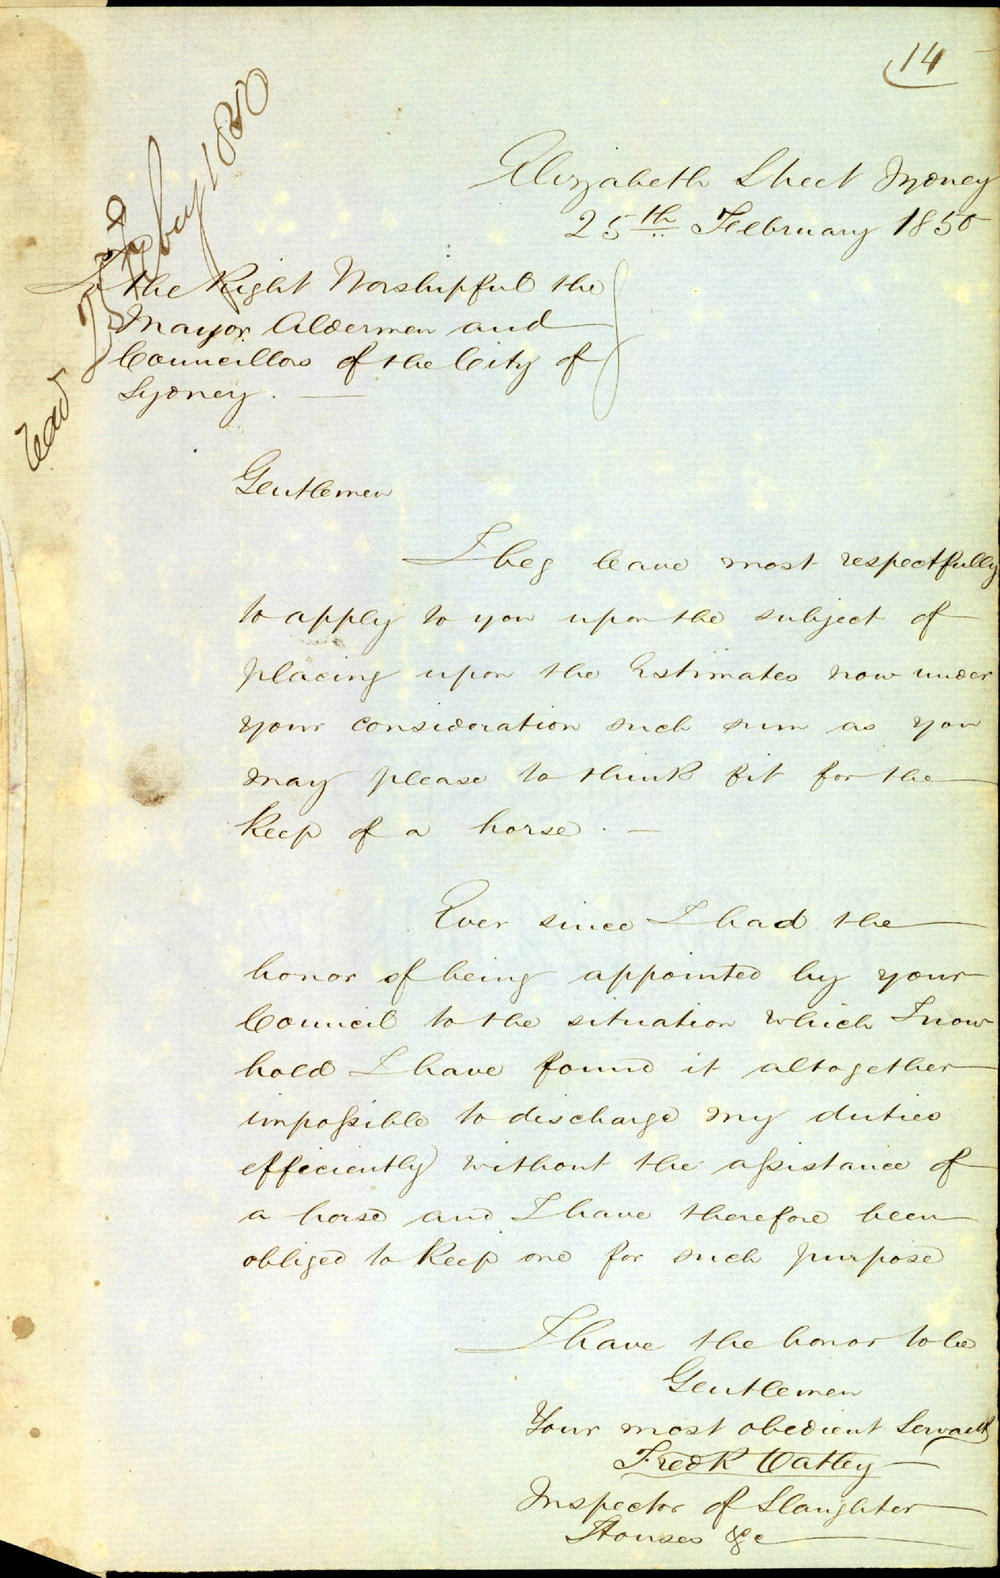 14
Elizabeth Street Sydney
25th February 1850
read 25th Feby 1850
To the Right Worshipful the
Mayor Aldermen and
Councillors of the City of
Sydney. —
Gentlemen
I beg leave most respectfully
to apply to you upon the subject of
placing upon the Estimates now under
your consideration such sum as you
may please to think fit for the
keep of a horse. —
Ever since I had the
honor of being appointed by your
Council to the situation which I now
hold I have found it altogether
impossible to discharge my duties
efficiently without the assistance of
a horse and I have therefore been
obliged to keep one for such purpose
I have the honor to be
Gentlemen
Your most obedient Servant
Fredk Oatley
Inspector of Slaughter
Houses &c